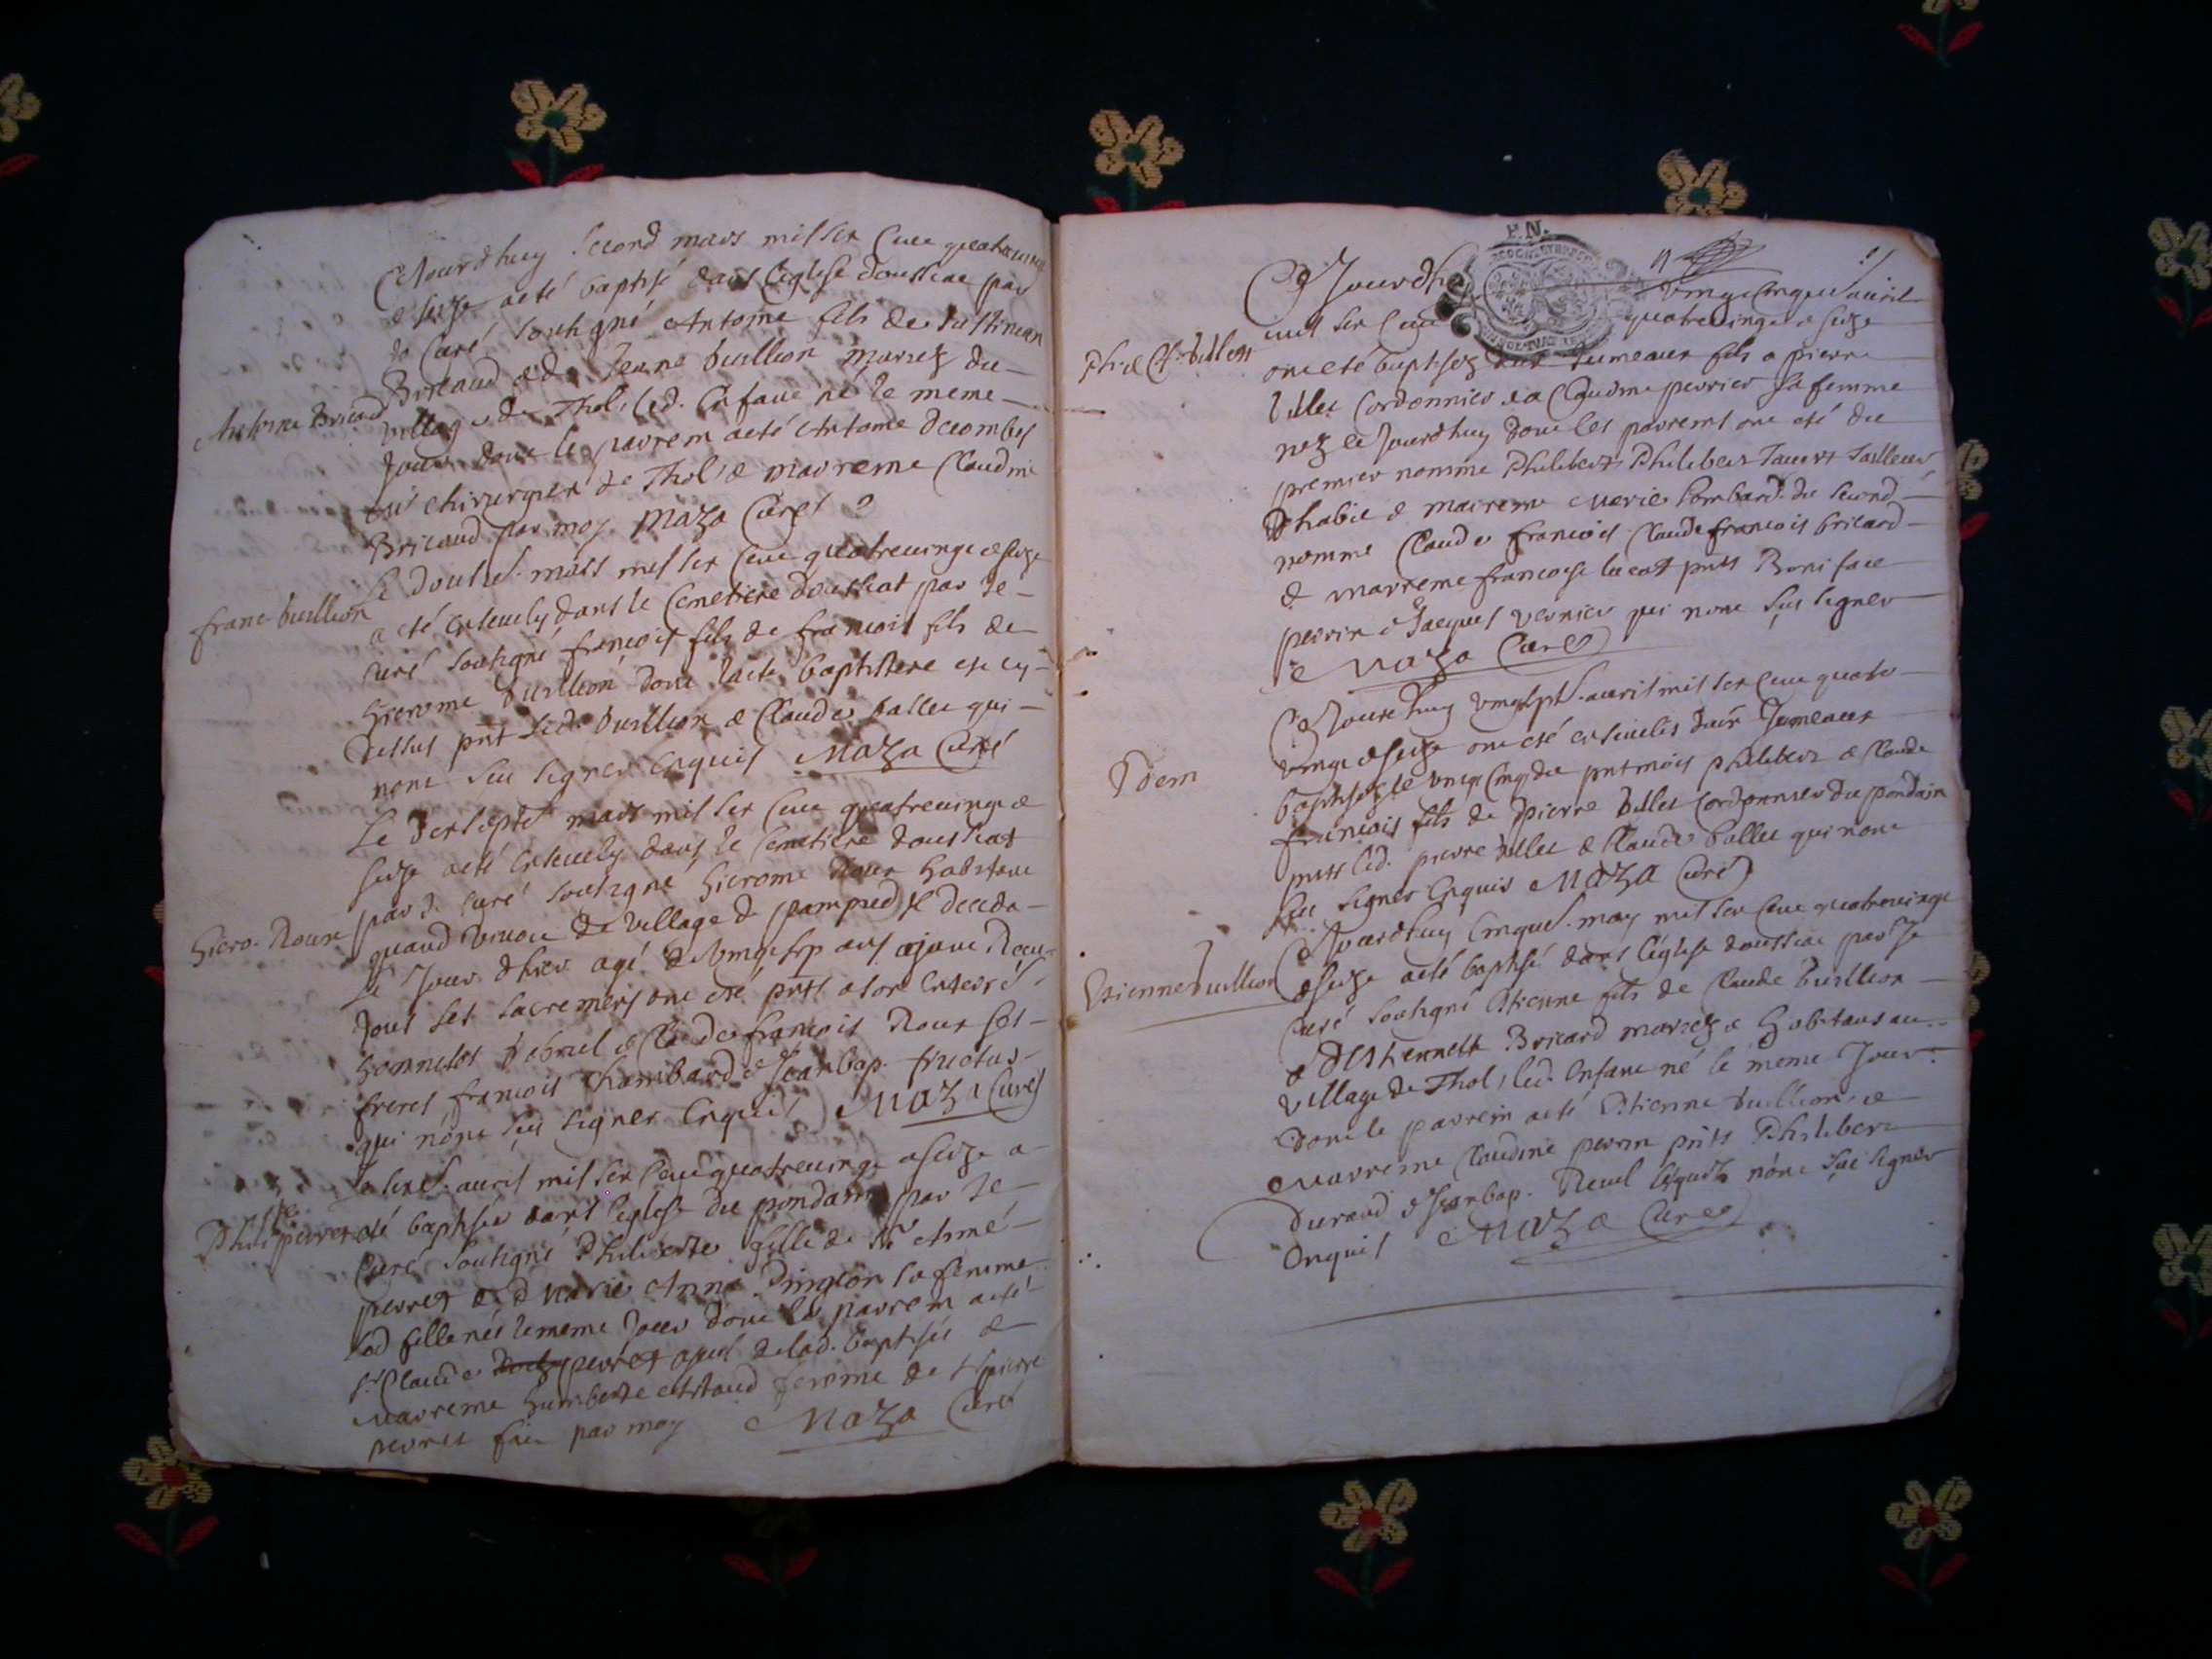 Ce Jourdhuy second mars mil six cent quatrevingt
& seize a eté baptisé dans l'eglise doussiat par
le Curé soussigné Antoine fils de Justinian
Bricaud & de Jeane vuillion mariez du
Antoine Bricaud
village de Thol, led. Enfant né le meme
Jour dont le parrein a eté Antoine decombes
chirurgien de Thol & marreine Claudine
Bricaud par moy Maza Curé
Le mars mil six cent quatrevingt & seize
franc vuillion
a eté Ensevely dans le Cemetiere doussiat par le
Curé soussigné françois fils de francois fils de
hierome vuillion dont l'acte baptistere est cy
dessus pnt led. vuillion & Claude ballet qui
nont sceu signer Enquis Maza Curé
Le dixsept mars mil six cent quatrevingt &
seize a eté Ensevely dans le Cemetiere doussiat
par le Curé soussigné hierome Roux habitant
hiero. Roux
quand vivoit du village de pampied & decedé
le Jour dhier agé de vingt sep ans ayant Receu
tous ses sacremens ont eté pnts a son Enterré
honnetes & Claude francois Roux ses
freres francois Chambard & Jean bap. fructus
qui nont sceu signer Enquis Maza Curé
Le avril mil six cent quatrevingt & seize a
eté baptisée dans l'eglise du pondain par le
Curé soussigné Philiberte fille de Sr Aimé
perret & d marie Anne sa femme
lad fille née le meme Jour dont le parrein a eté
Sr Claude perret ayeul de lad. baptisée &
marreine humberte femme de Sr pierre
perret fait par moy Maza Curé
P.N.
Ce Jourdhuy vingt cinque avril
mil six cent quatrevingt & seize
Ph. & Cl. villet
ont eté baptisez deux Jumeaux fils a pierre
villet Cordonnier & a Claudine perrier sa femme
nez ce Jourdhuy dont les parreins ont eté du
premier nomme Philibert Philibert Tailleur
dhabit & mairenne Marie Lombard du second
nomme Claude francois Claude francois bricard
& marreine francoise pnts Boniface
perrin & Jacques vernier qui nont sçu signer
Maza Curé
Ce Jourdhuy vingtsept avril mil six cent quatre
vingt & seize ont eté ensevelis deux Jumeaux
Idem
baptisez le vingt cinq du pnt mois philibert & Claude
francois fils de pierre villet Cordonnier du pondain
pnts led. pierre villet & Claude ballet qui nont
sceu signer Enquis Maza Curé
Ce Jourdhuy Cinque may mil six cent quatrevingt
& seize a eté baptisé dans l'eglise doussiat par le
Etienne vuillion
Curé soussigné Etienne fils de Claude vuillion
& Bricard mariez & habitans au
village de Thol, led. Enfant né le meme Jour
dont le parrein a eté Etienne vuillion &
Marreine Claudine perrin pnts Philibert
durand & Jean bap. lesquels nont sçu signer
Enquis Maza Curé